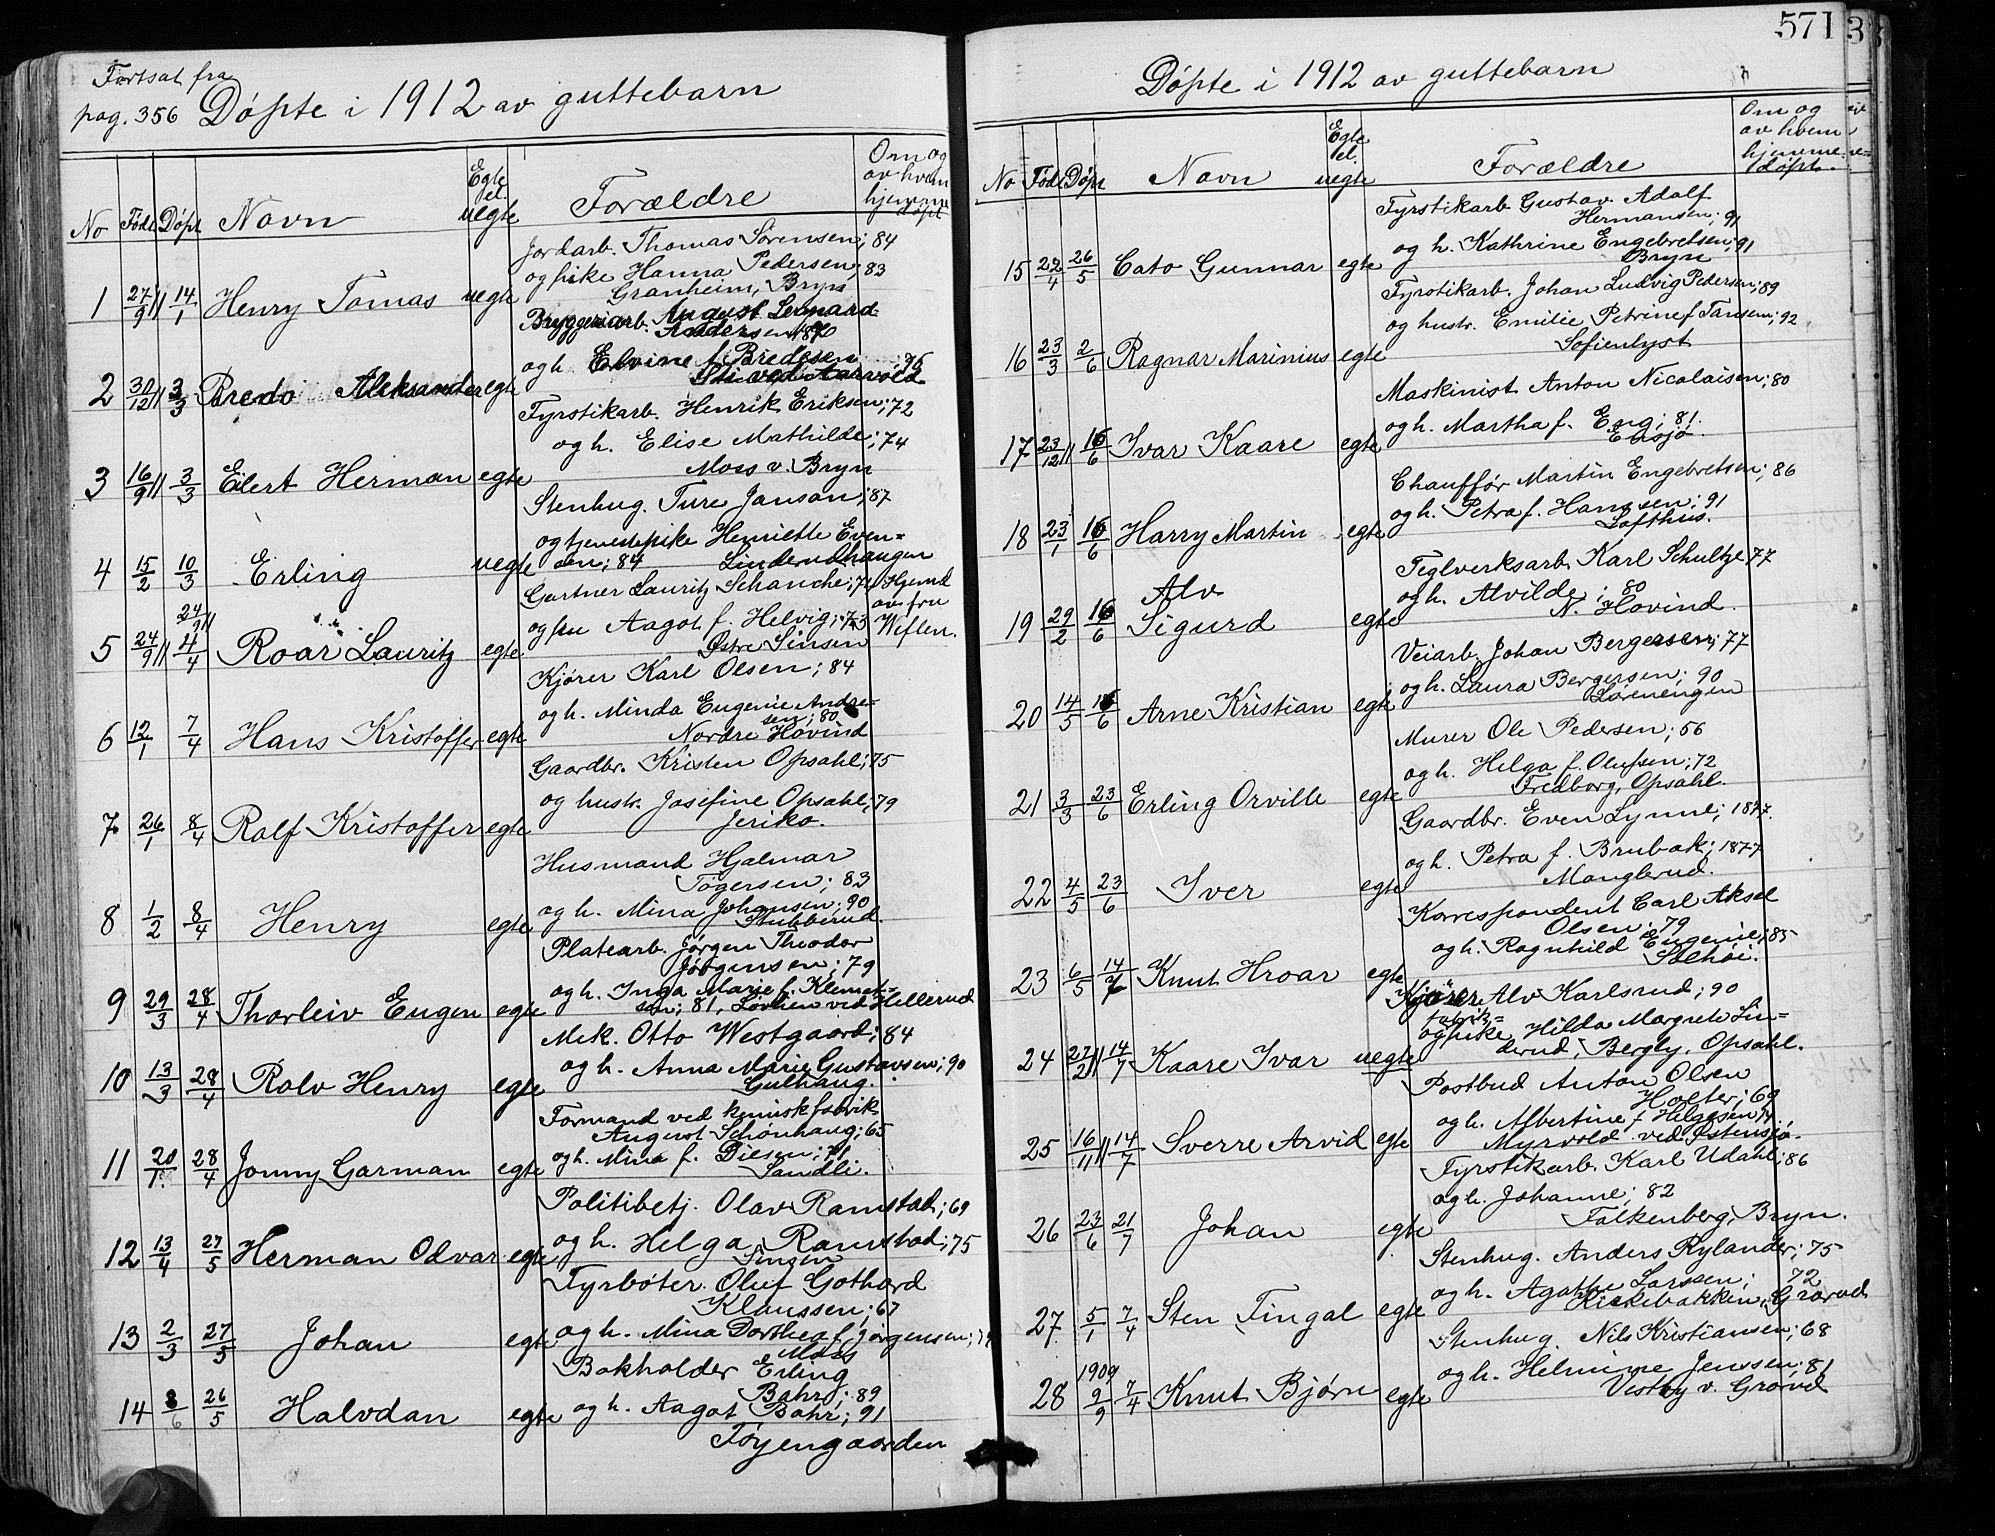 571
Fortsat fra
pag. 356 Døpte i 1912 av guttebarn
No Født Døpt Navn Egte el. uegte Forældre Om og av hvem hjemmedøpt
Jordarb. Thomas Sørensen; 84
og pike Hanna Pedersen; 83
Granheim, Bryn
1 27/9 11 14/1 Henry Tomas uegte
Bryggeriarb. August Leonard
Andersen 1870
og h. Elvine f. Bredesen 75
ved Aarvold
2 30/12 11 3/3 Bredo Aleksander egte
Fyrstikarb. Henrik Eriksen; 72
og h. Elise Mathilde; 74
Moss v. Bryn
3 16/9 11 3/3 Eilert Herman egte
Stenhug. Ture Janson; 87
og tjenestepike Henriette Even=
sen; 84 Linderudhaugen
4 15/2 10/3 Erling uegte
Gartner Lauritz Schanche; 74 Hjemd
24/9 11 av fru
og fru Aagot f. Helvig; 73 Wiflen.
Østre Sinsen
5 24/9 11 4/4 Roar Lauritz egte
Kjører Karl Olsen; 84
og h. Minda Eugenie Andre=
sen; 80
Nordre Hovind
6 12/1 7/4 Hans Kristoffer egte
Gaardbr. Kristen Opsahl; 75
og hustr. Josefine Opsahl; 79
Jeriko.
7 26/1 8/4 Ralf Kristoffer egte
Husmand Hjalmar
Togersen; 83
og h. Mina Johansen; 90
Stubberud.
8 1/2 8/4 Henry egte
Platearb. Jørgen Theodor
Jørgensen; 79
og h. Inga Marie f. Klemet=
sen; 81, Lørlien ved Hellerud
9 29/3 28/4 Thorleiv Eugen egte
Mek. Otto Westgaard; 84
og h. Anna Marie Gustavsen; 90
Gulhaug.
10 13/3 28/4 Rolv Henry egte
Formand ved kemisk fabrik
August Schønhaug; 65
og h. Mina f. Diesen; 71
Sandli.
11 20/1 28/4 Jonny Garman egte
Politibetj. Olav Ramstad; 69
og h. Helga Ramstad; 75
Sinsen
12 13/4 27/5 Herman Odvar egte
Fyrbøter Oluf Gothard
Klaussen; 67
og h. Mina Dorthea f. Jørgensen;
Moss
13 2/3 27/5 Johan egte
Bokholder Erling
Bahr; 89
og h. Aagot Bahr; 91
Tøyengaarden
14 8/6 26/5 Halvdan egte
Døpte i 1912 av guttebarn
No Født Døpt Navn Egte el. uegte Forældre Om og av hvem hjemmedøpt.
Fyrstikarb. Gustav Adolf
Hermansen; 91
og h. Kathrine Engebretsen; 91
Bryn
15 22/4 26/5 Cato Gunnar egte
Fyrstikarb. Johan Ludvig Pedersen; 89
og hustr. Emilie Petrine f. Tansem; 92
Sofienlyst
16 23/3 2/6 Ragnar Marinius egte
Maskinist Anton Nicolaisen; 80
og h. Martha f. Eng; 81.
Ensjø.
17 23/12 11 16/6 Ivar Kaare egte
Chauffør Martin Engebretsen; 86
og h. Petra f. Hanssen; 91
Lofthus.
18 23/1 16/6 Harry Martin egte
Teglverksarb. Karl Schultze 77
og h. Alvilde; 80
N. Hovind.
19 29/2 16/6 Alv Sigurd egte
Veiarb. Johan Bergersen; 77
og h. Laura Bergersen; 90
Lørenengen
20 14/5 16/6 Arne Kristian egte
Murer Ole Pedersen; 56
og h. Helga f. Olufsen; 72
Fredborg, Opsahl.
21 3/3 23/6 Erling Orville egte
Gaardbr. Even Lynne; 1877.
og h. Petra f. Brubak; 1877
Manglerud.
22 4/5 23/6 Iver egte
Korrespondent Carl Aksel
Olsen; 79
og h. Ragnhild Eugenie; 85
Solhøi.
23 6/5 14/7 Knut Hroar egte
Kjører Alv Karlsrud; 90
fabrik=
og pike Hilda Margrete Lin=
derud, Bergly, Opsahl.
24 27/2 11 14/7 Kaare Ivar uegte
Postbud Anton Olsen
Holter; 69
og h. Albertine f. Helgesen
Myrvold ved Østensjø.
25 16/11 11 14/7 Sverre Arvid egte
Fyrstikarb. Karl Udahl; 86
og h. Johanne; 82
Falkenberg, Bryn.
26 23/6 21/7 Johan egte
Stenhug. Anders Rylander; 75
og h. Agathe Larssen; 72
Kirkebakken, Grorud
27 5/1 7/4 Sten Fingal egte
Stenhug. Nils Kristiansen; 68
og h. Helmine Jenssen; 81
Vestby v. Grorud
1909
28 9/9 7/4 Knut Bjørn egte